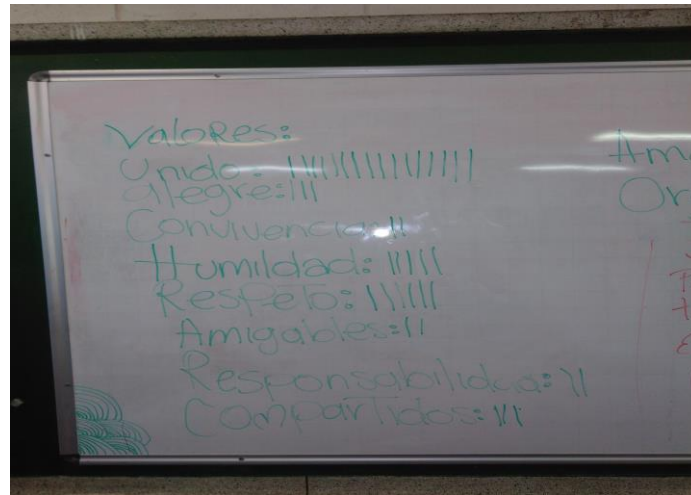 ValoRes:
Unido: ||||||||||||||||
alegre: |||
Convivencia: ||
Humildad: |||||
Respeto: ||||||
Amigables: ||
Responsabilidad: ||
Compartidos: |||
Am
Or